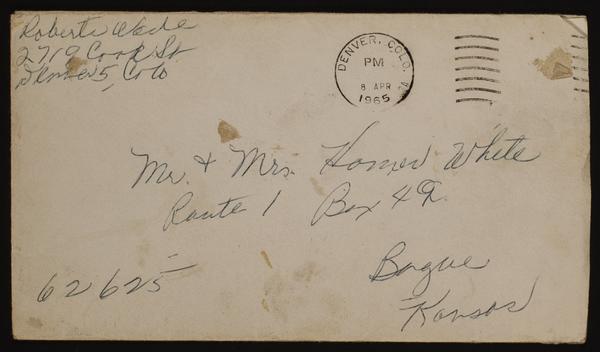 Roberta Wade
2719 Cook St.
Denver 5, Colo
DENVER, COLO.
PM
8 APR
1965
Mr. & Mrs. Homer White
Route 1 Box 49.
Bogue
Kansas
62625